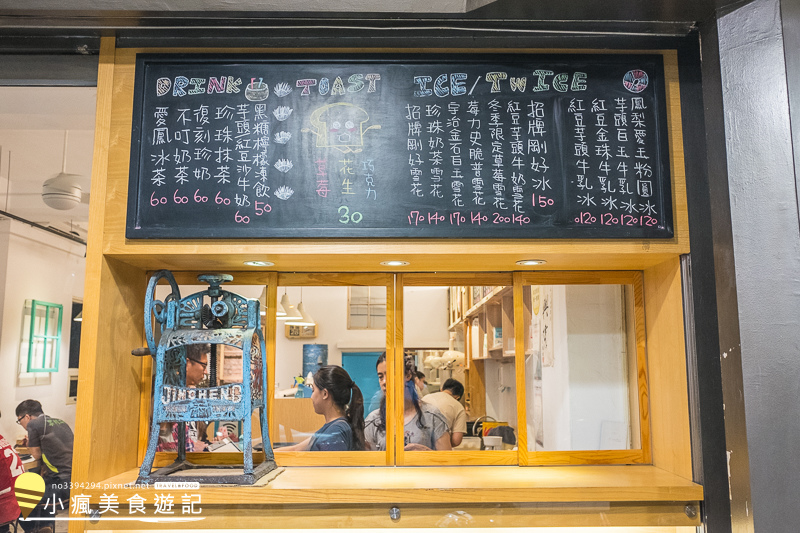 DRINK
TOAST
ICE/TWICE
黑糖檸檬凍飲
50
芋頭紅豆沙牛奶
60
珍珠抹茶
60
復刻珍奶
60
不叮奶茶
60
愛鳳冰茶
60
巧克力
花生
草莓
30
招牌剛好冰
150
紅豆芋頭牛奶雪花
140
冬季限定草莓雪花
200
莓力史脆普雪花
170
宇治金石巨玉雪花
170
珍珠奶茶雪花
140
招牌剛好雪花
170
鳳梨愛玉粉圓冰
120
芋頭巨玉牛乳冰
120
紅豆金珠牛乳冰
120
紅豆芋頭牛乳冰
120
JINCHENG
no3394294.pixnet.net
TRAVEL&FOOD
小瘋美食遊記